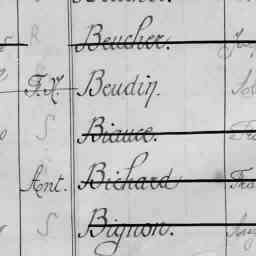 R Beucher.
F.X. Beudin.
S Biauce.
Ant. Bichard
S Bignon.